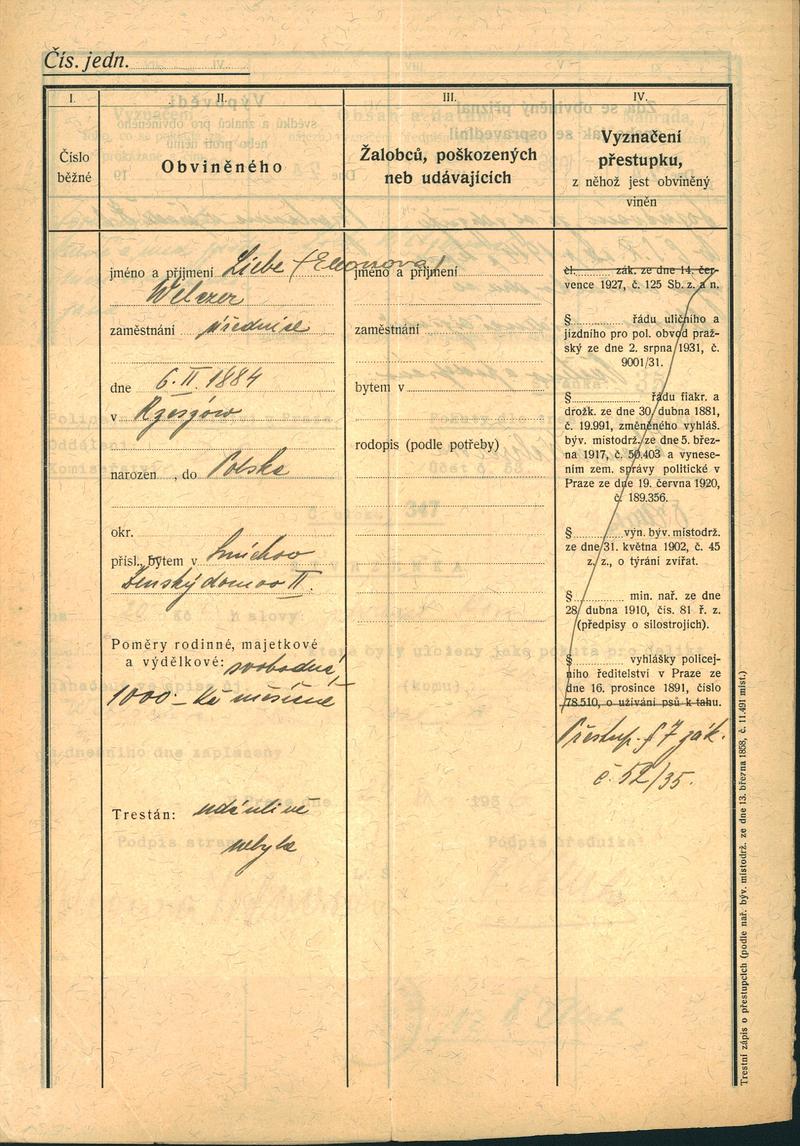 Čís. jedn.
I.
II.
III.
IV.
Číslo
běžné
Obviněného
Žalobců, poškozených
neb udávajících
Vyznačení
přestupku,
z něhož jest obviněný
viněn
jméno a příjmení Liebe (Eleonora)
Welczer
zaměstnání úřednice
dne 6. II. 1884
v Rzeszów
narozen , do Polska
okr.
přísl., bytem v Smíchov
Ženský domov II.
Poměry rodinné, majetkové
a výdělkové: svobodná,
1000.- Kč měsíčně
Trestán: udánlivě
nebyla
jméno a příjmení
zaměstnání
bytem v
rodopis (podle potřeby)
čl. zák. ze dne 14. čer-
vence 1927, č. 125 Sb. z. a n.
§ řádu uličního a
jízdního pro pol. obvod praž-
ský ze dne 2. srpna 1931, č.
9001/31.
§ řádu fiakr. a
drožk. ze dne 30. dubna 1881,
č. 19.991, změněného vyhláš.
býv. místodrž. ze dne 5. břez-
na 1917, č. 50.403 a vynese-
ním zem. správy politické v
Praze ze dne 19. června 1920,
č. 189.356.
§ vyn. býv. místodrž.
ze dne 31. května 1902, č. 45
z. z., o týrání zvířat.
§ min. nař. ze dne
28. dubna 1910, čís. 81 ř. z.
(předpisy o silostrojích).
§ vyhlášky policej-
ního ředitelství v Praze ze
dne 16. prosince 1891, číslo
78.510, o užívání psů k tahu.
Přestup. § 7 zák.
č. 52/35.
Trestní zápis o přestupcích (podle nař. býv. místodrž. ze dne 13. března 1858, č. 11.491 míst.)